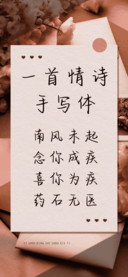 一首情诗
手写体
南风未起
念你成疾
喜你为疾
药石无医